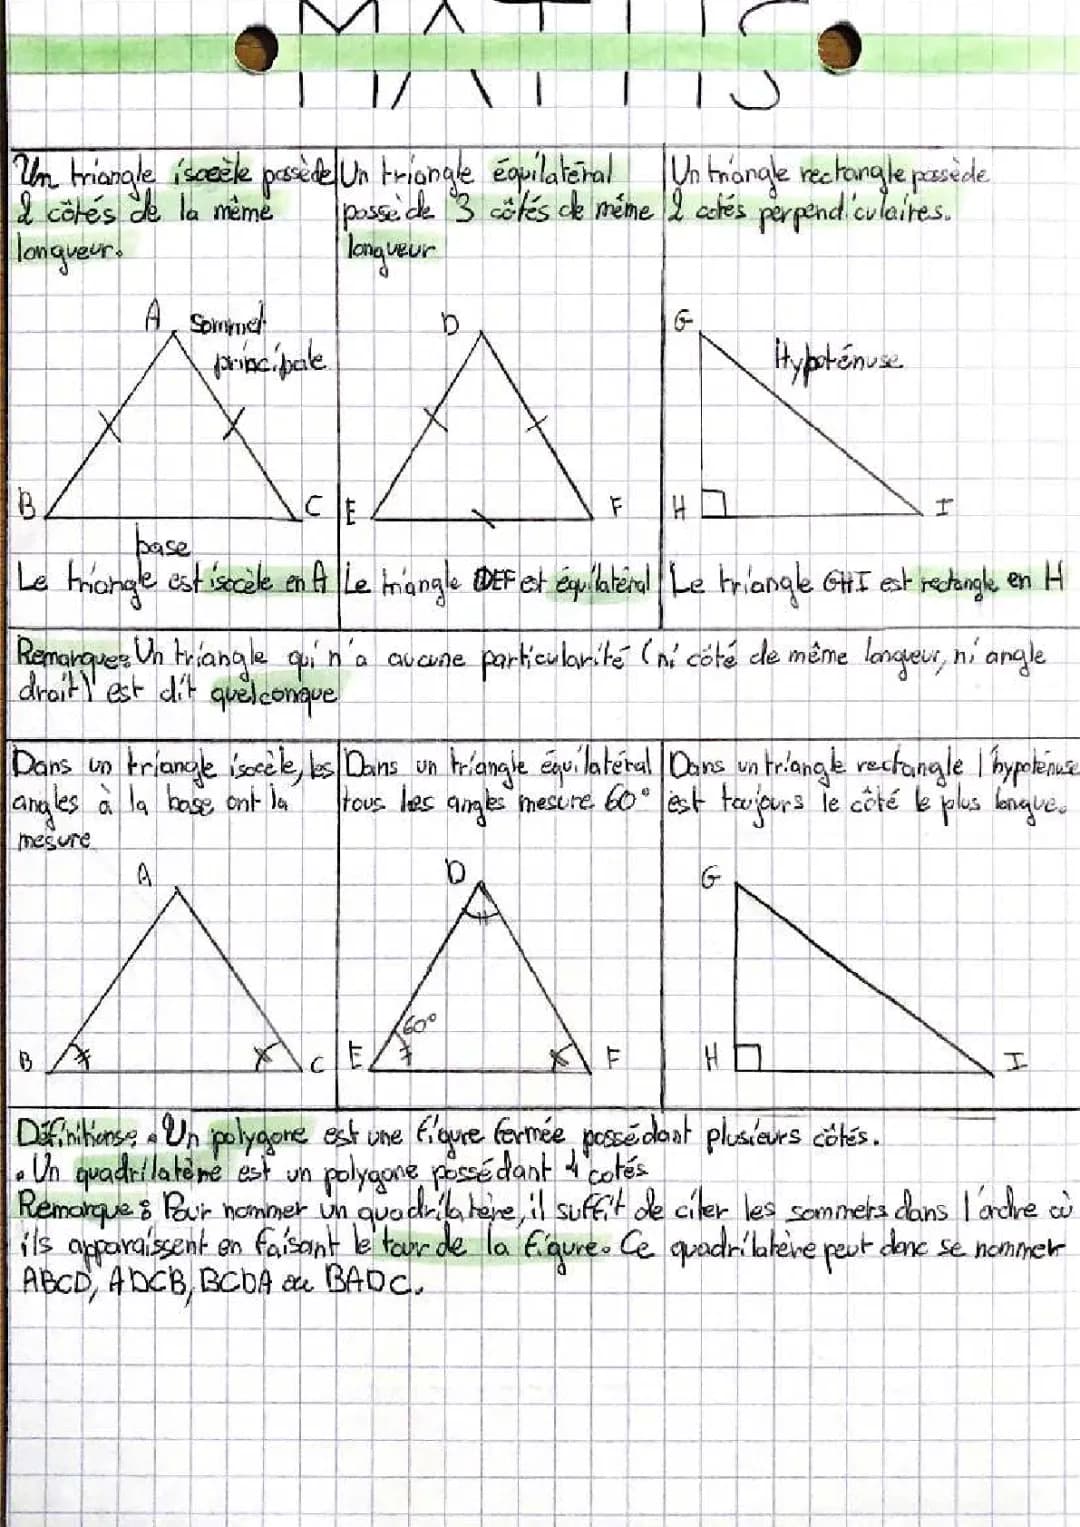 MATHS
Un triangle isocèle possède
2 côtés de la même
longueur.
Un triangle équilatéral
possède 3 côtés de même
longueur
Un triangle rectangle possède
2 cotés perpendiculaires.
A Sommet
principale
B
C
base
D
E
F
G
Hypoténuse
H
I
Le triangle est isocèle en A
Le triangle DEF et équilatéral
Le triangle GHI est rectangle en H
Remarque: Un triangle qui n'a aucune particularité (ni côté de même longueur, ni angle
droit) est dit quelconque
Dans un triangle isocèle, les
angles à la base ont la
mesure
Dans un triangle équilatéral
tous les angles mesure 60°
Dans un triangle rectangle l'hypoténuse
est toujours le côté le plus longue.
A
B
C
D
60°
E
F
G
H
I
Définitions: • Un polygone est une figure fermée possédant plusieurs côtés.
• Un quadrilatère est un polygone possédant 4 cotés
Remarque: Pour nommer un quadrilatère, il suffit de citer les sommets dans l'ordre où
ils apparaissent en faisant le tour de la figure. Ce quadrilatère peut donc se nommer
ABCD, ADCB, BCDA ou BADC.